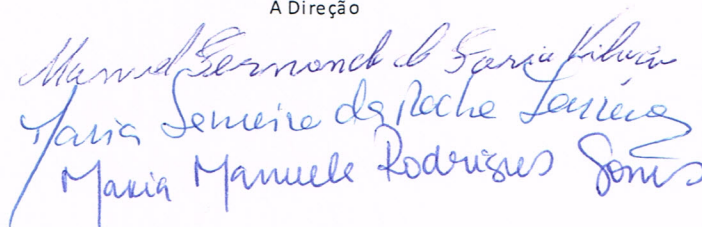 A Direção
Manuel Fernando de Faria
Maria da Rocha Ferreira
Maria Manuela Rodrigues Gomes